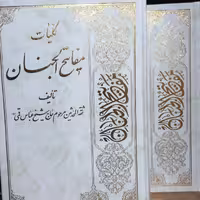 کلیات
مفاتیح الجنان
تألیف
ثقة المحدثین مرحوم حاج شیخ عباس قمی